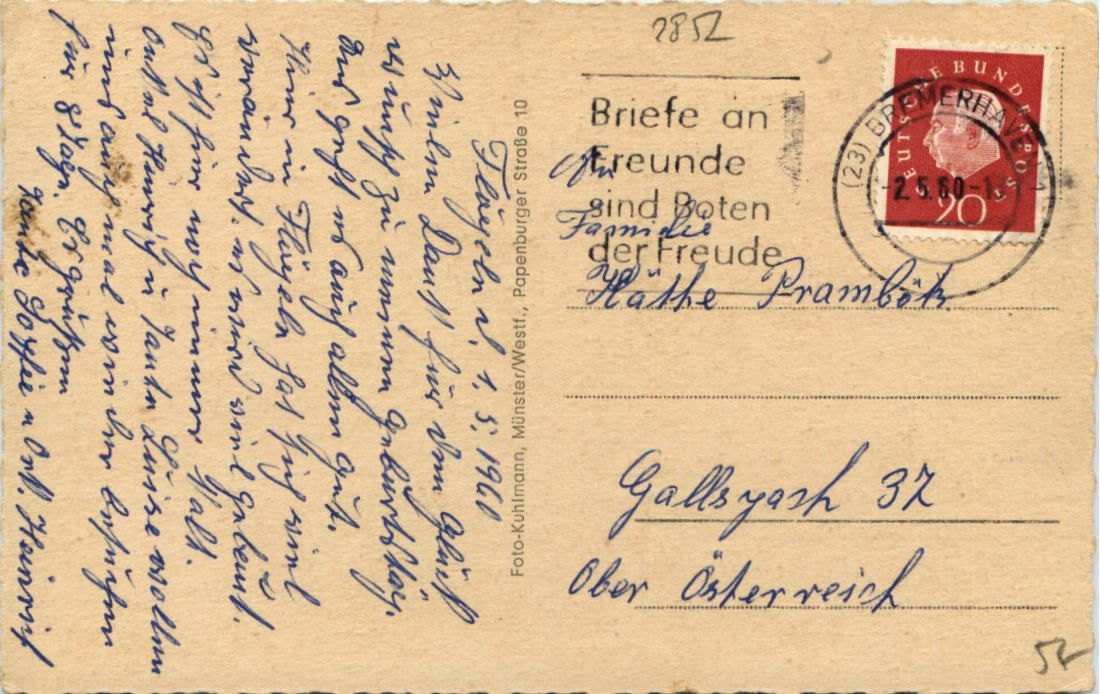 Flögeln d. 1. 5. 1960
Vielen Dank für den Glück
wunsch zu meinem Geburtstag.
Uns geht es auch allen gut.
Hier in Flögeln hat sich viel
verändert. es wird viel gebaut.
Es ist hier noch immer kalt.
Onkel Hinrich u Tante Luise wollen
uns auch mal wieder besuchen
für 8 Tage. Es grüßen
Tante Sophie u Onk. Heinrich
Foto-Kuhlmann, Münster/Westf., Papenburger Straße 10
2852
Briefe an
Freunde
sind Boten
der Freude
DEUTSCHE BUNDESPOST
20
(23) BREMERHAVEN
-2.5.60-1
An
Familie
Käthe Pramböck
37
Ober Österreich
52